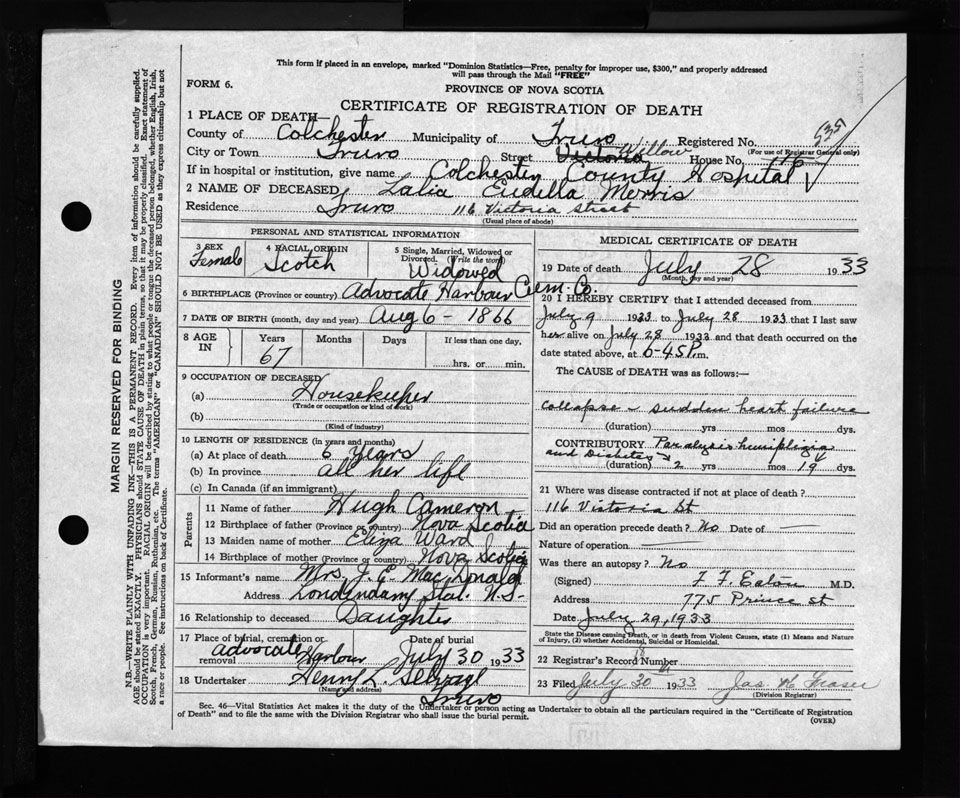 This form if placed in an envelope, marked "Dominion Statistics—Free, penalty for improper use, $300," and properly addressed
will pass through the Mail "FREE"
FORM 6.
PROVINCE OF NOVA SCOTIA
CERTIFICATE OF REGISTRATION OF DEATH
1 PLACE OF DEATH
County of Colchester Municipality of Truro Registered No. 535
(For use of Registrar General only)
City or Town Truro Street Victoria Willow House No. 116
If in hospital or institution, give name Colchester County Hospital
2 NAME OF DECEASED Lalia Eudella Morris
Residence Truro 116 Victoria street
(Usual place of abode)
PERSONAL AND STATISTICAL INFORMATION
3 SEX Female
4 RACIAL ORIGIN Scotch
5 Single, Married, Widowed or Divorced. (Write the word) Widowed
6 BIRTHPLACE (Province or country) Advocate Harbour Cum. Co.
7 DATE OF BIRTH (month, day and year) Aug 6 - 1866
8 AGE IN Years 67 Months Days If less than one day, hrs. or min.
9 OCCUPATION OF DECEASED
(a) Housekeeper
(Trade or occupation or kind of work)
(b)
(Kind of industry)
10 LENGTH OF RESIDENCE (in years and months)
(a) At place of death 6 years
(b) In province all her life
(c) In Canada (if an immigrant)
Parents
11 Name of father Hugh Cameron
12 Birthplace of father (Province or country) Nova Scotia
13 Maiden name of mother Eliza Ward
14 Birthplace of mother (Province or country) Nova Scotia
15 Informant's name Mrs. J. E. MacDonald
Address Londonderry Stat. N.S.
16 Relationship to deceased Daughter
17 Place of burial, cremation or removal Advocate Harbour Date of burial July 30 1933
18 Undertaker Henny L. Selvage
(Name and address)
Truro
MEDICAL CERTIFICATE OF DEATH
19 Date of death July 28 1933
(Month, day and year)
20 I HEREBY CERTIFY that I attended deceased from
July 9 1933 to July 28 1933 that I last saw
her alive on July 28 1933 and that death occurred on the
date stated above, at 6-45 P.m.
The CAUSE of DEATH was as follows:—
Collapse - sudden heart failure
(duration) yrs mos dys.
CONTRIBUTORY Paralysis hemiplegia
and Diabetes
(duration) 2 yrs mos 19 dys.
21 Where was disease contracted if not at place of death?
116 Victoria St
Did an operation precede death? No Date of —
Nature of operation —
Was there an autopsy? No
(Signed) F. F. Eaton M.D.
Address 775 Prince st
Date July 29, 1933
State the Disease causing Death, or in death from Violent Causes, state (1) Means and Nature
of Injury, (2) whether Accidental, Suicidal or Homicidal.
22 Registrar's Record Number
23 Filed July 30th 1933 Jas W Fraser
(Division Registrar)
Sec. 46—Vital Statistics Act makes it the duty of the Undertaker or person acting as Undertaker to obtain all the particulars required in the "Certificate of Registration
of Death" and to file the same with the Division Registrar who shall issue the burial permit.
(OVER)
MARGIN RESERVED FOR BINDING
N.B.—WRITE PLAINLY WITH UNFADING INK—THIS IS A PERMANENT RECORD. Every item of information should be carefully supplied.
AGE should be stated EXACTLY. PHYSICIANS should STATE CAUSE OF DEATH in plain terms, so that it may be properly classified. Exact statement of
OCCUPATION is very important. RACIAL ORIGIN will be described by stating to what people or tongue the deceased person belonged, whether English, Irish,
Scotch, French, German, Russian, Ruthenian, etc. The terms "AMERICAN" or "CANADIAN" SHOULD NOT BE USED as they express citizenship but not
a race or people. See instructions on back of Certificate.